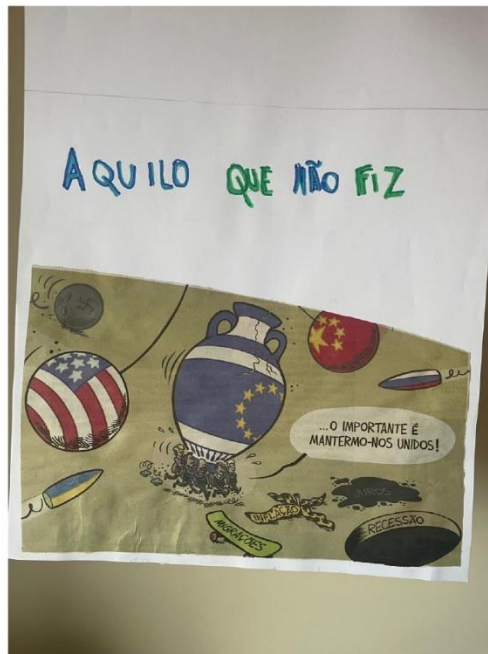 AQUILO QUE NÃO FIZ
...O IMPORTANTE É
MANTERMO-NOS UNIDOS!
JUROS
INFLAÇÃO
RECESSÃO
MIGRAÇÕES